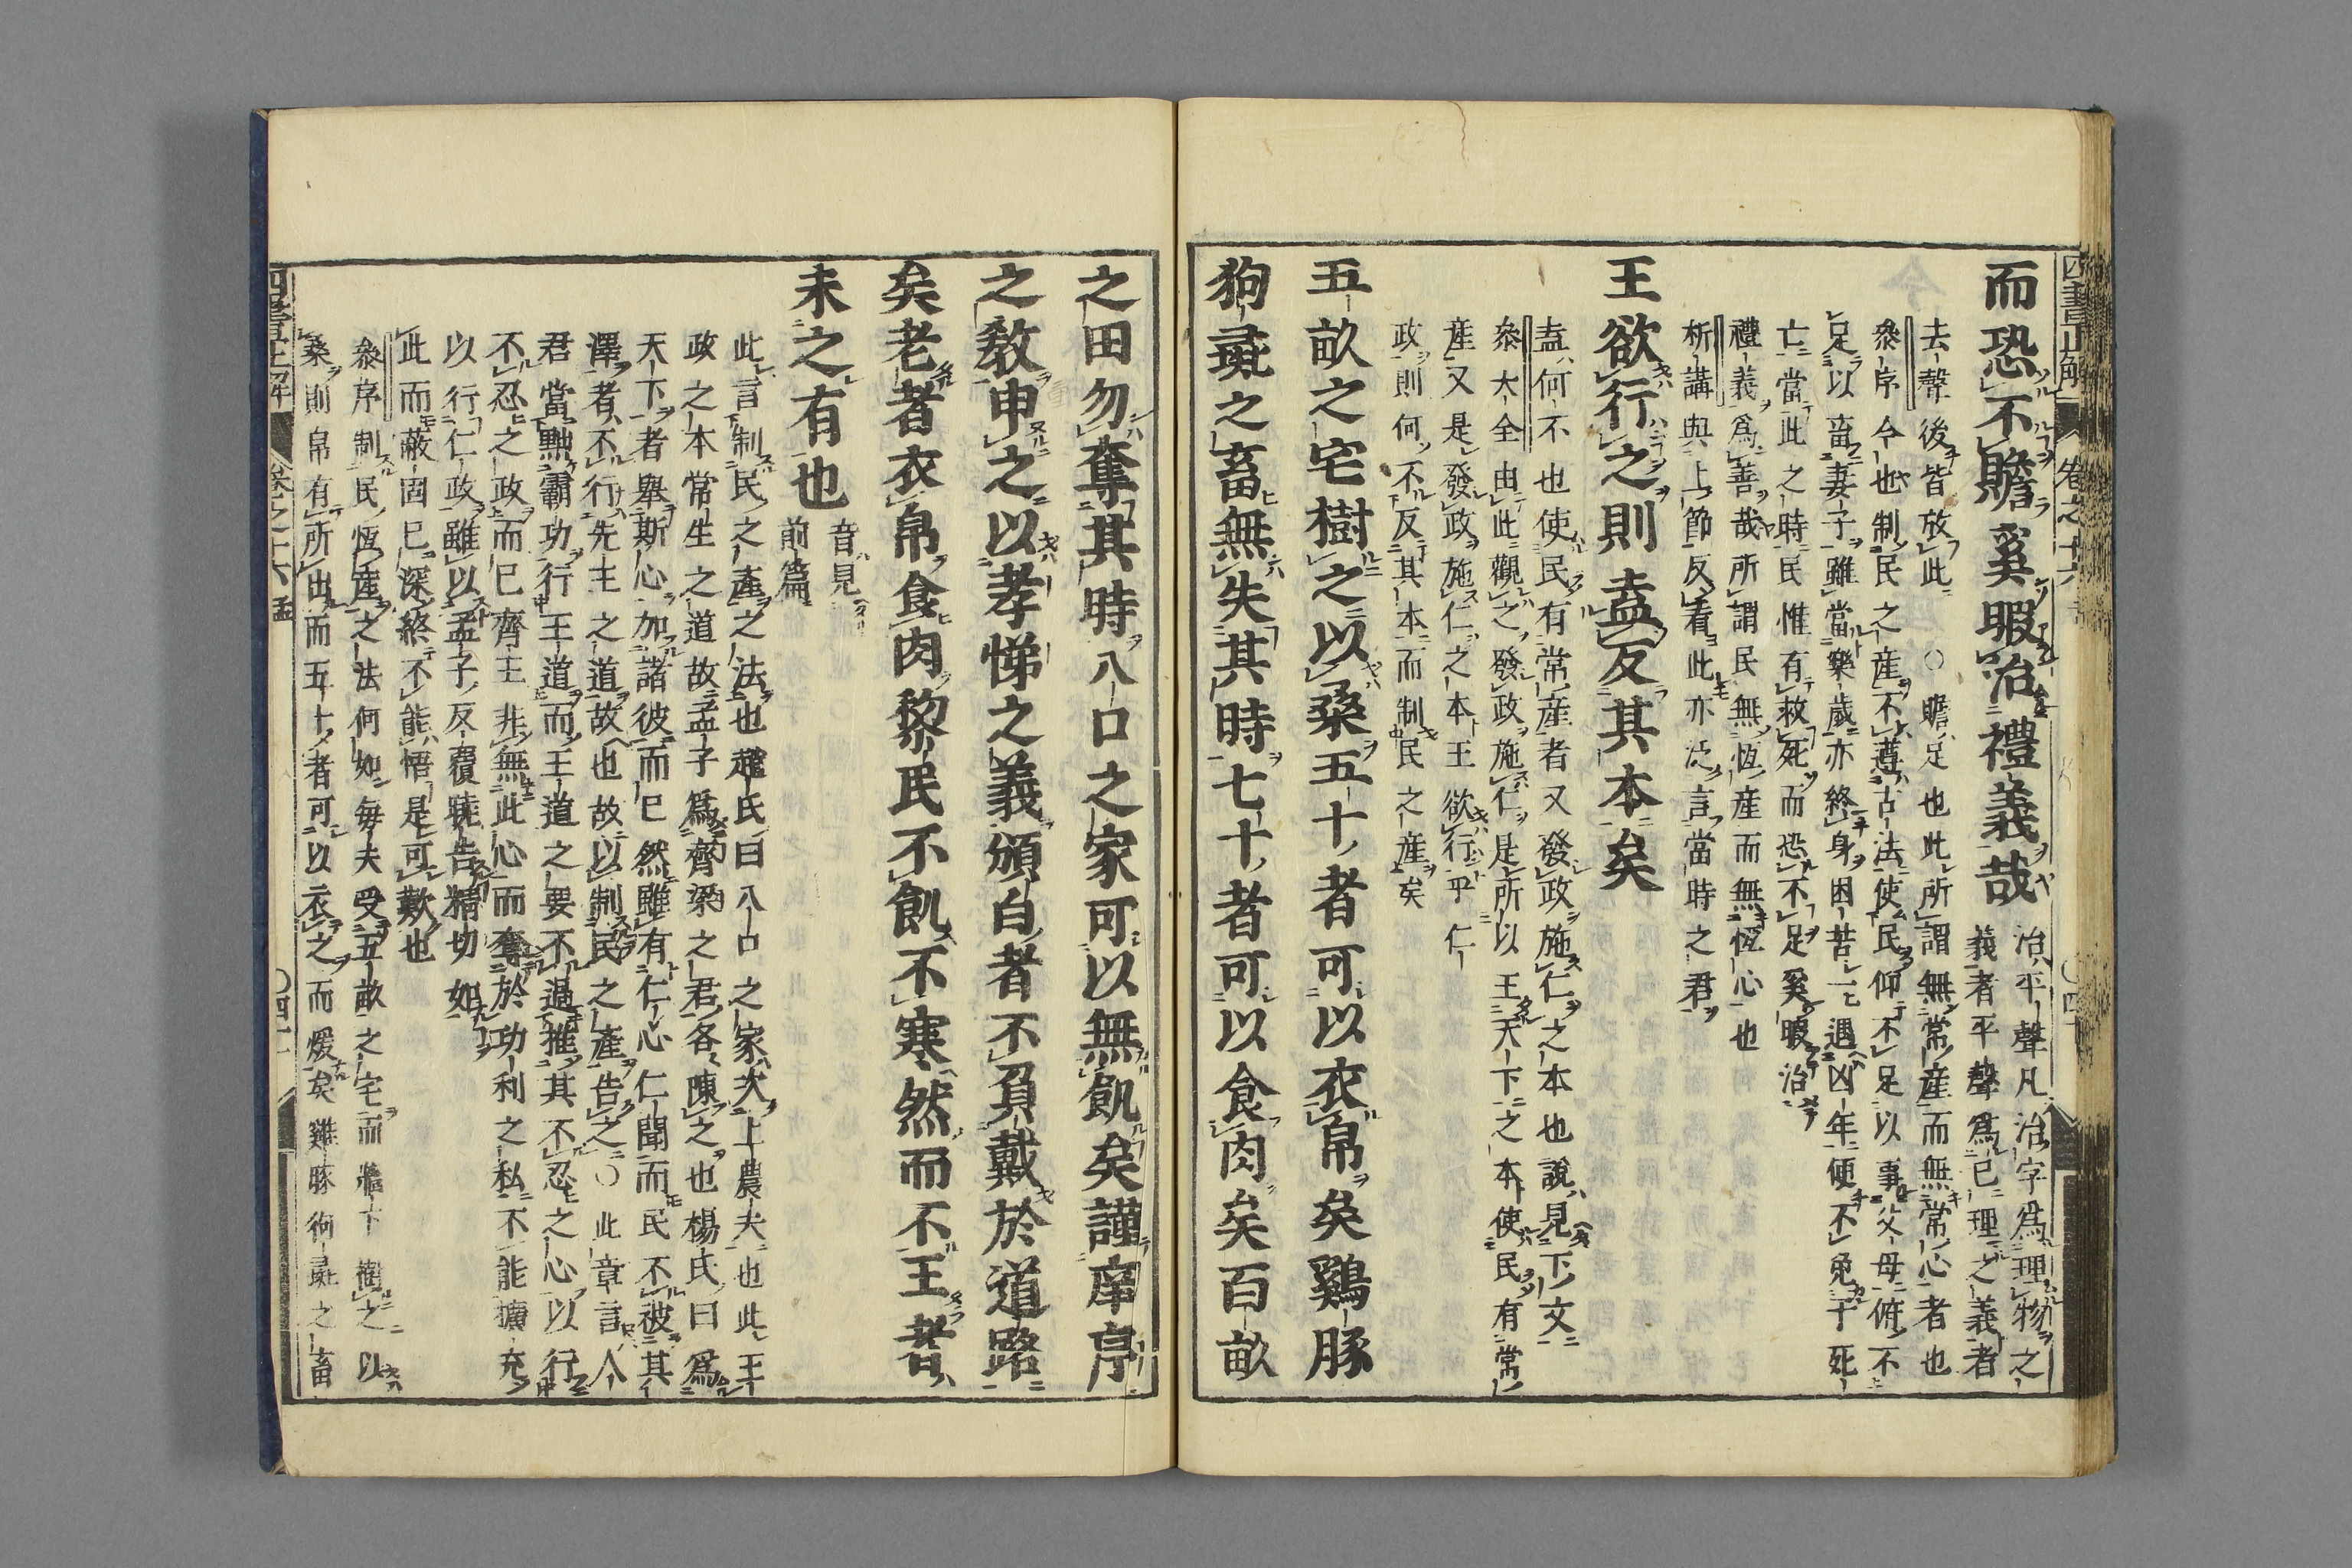 四書正解 卷之十六 〇四十
而恐不贍奚暇治禮義哉
治平聲凡治字爲理物之
義者平聲爲已理之義者
去聲後皆放此〇贍足也此所謂無常產而無常心者也
叅序今也制民之產不遵古法使民仰不足以事父母俯不
足以畜妻子雖當樂歲亦終身困苦一遇凶年便不免于死
亡當此之時民惟有救死而恐不足奚暇治
禮義爲善哉所謂民無恆產而無恆心也
析講與上節反看此亦泛言當時之君
王欲行之則盍反其本矣
盍何不也使民有常產者又發政施仁之本也說見下文
叅大全由此觀之發政施仁是所以王天下之本使民有常
產又是發政施仁之本王欲行乎仁
政則何不反其本而制民之產矣
五畝之宅樹之以桑五十者可以衣帛矣雞豚
狗彘之畜無失其時七十者可以食肉矣百畝
之田勿奪其時八口之家可以無飢矣謹庠序
之教申之以孝悌之義頒白者不負戴於道路
矣老者衣帛食肉黎民不飢不寒然而不王者
未之有也
音見
前篇
此言制民之產之法也趙氏曰八口之家次上農夫也此王
政之本常生之道故孟子爲齊梁之君各陳之也楊氏曰爲
天下者舉斯心加諸彼而已然雖有仁心仁聞而民不被其
澤者不行先王之道故也故以制民之產告之〇此章言人
君當黜霸功行王道而王道之要不過推其不忍之心以行
不忍之政而已齊王非無此心而奪於功利之私不能擴充
以行仁政雖以孟子反覆曉告精切如
此而蔽固已深終不能悟是可歎也
叅序制民恆產之法何如每夫受五畝之宅而牆下樹之以
桑則帛有所出而五十者可以衣之而煖矣雞豚狗彘之畜
四書正解 卷之十六 孟 〇四十一